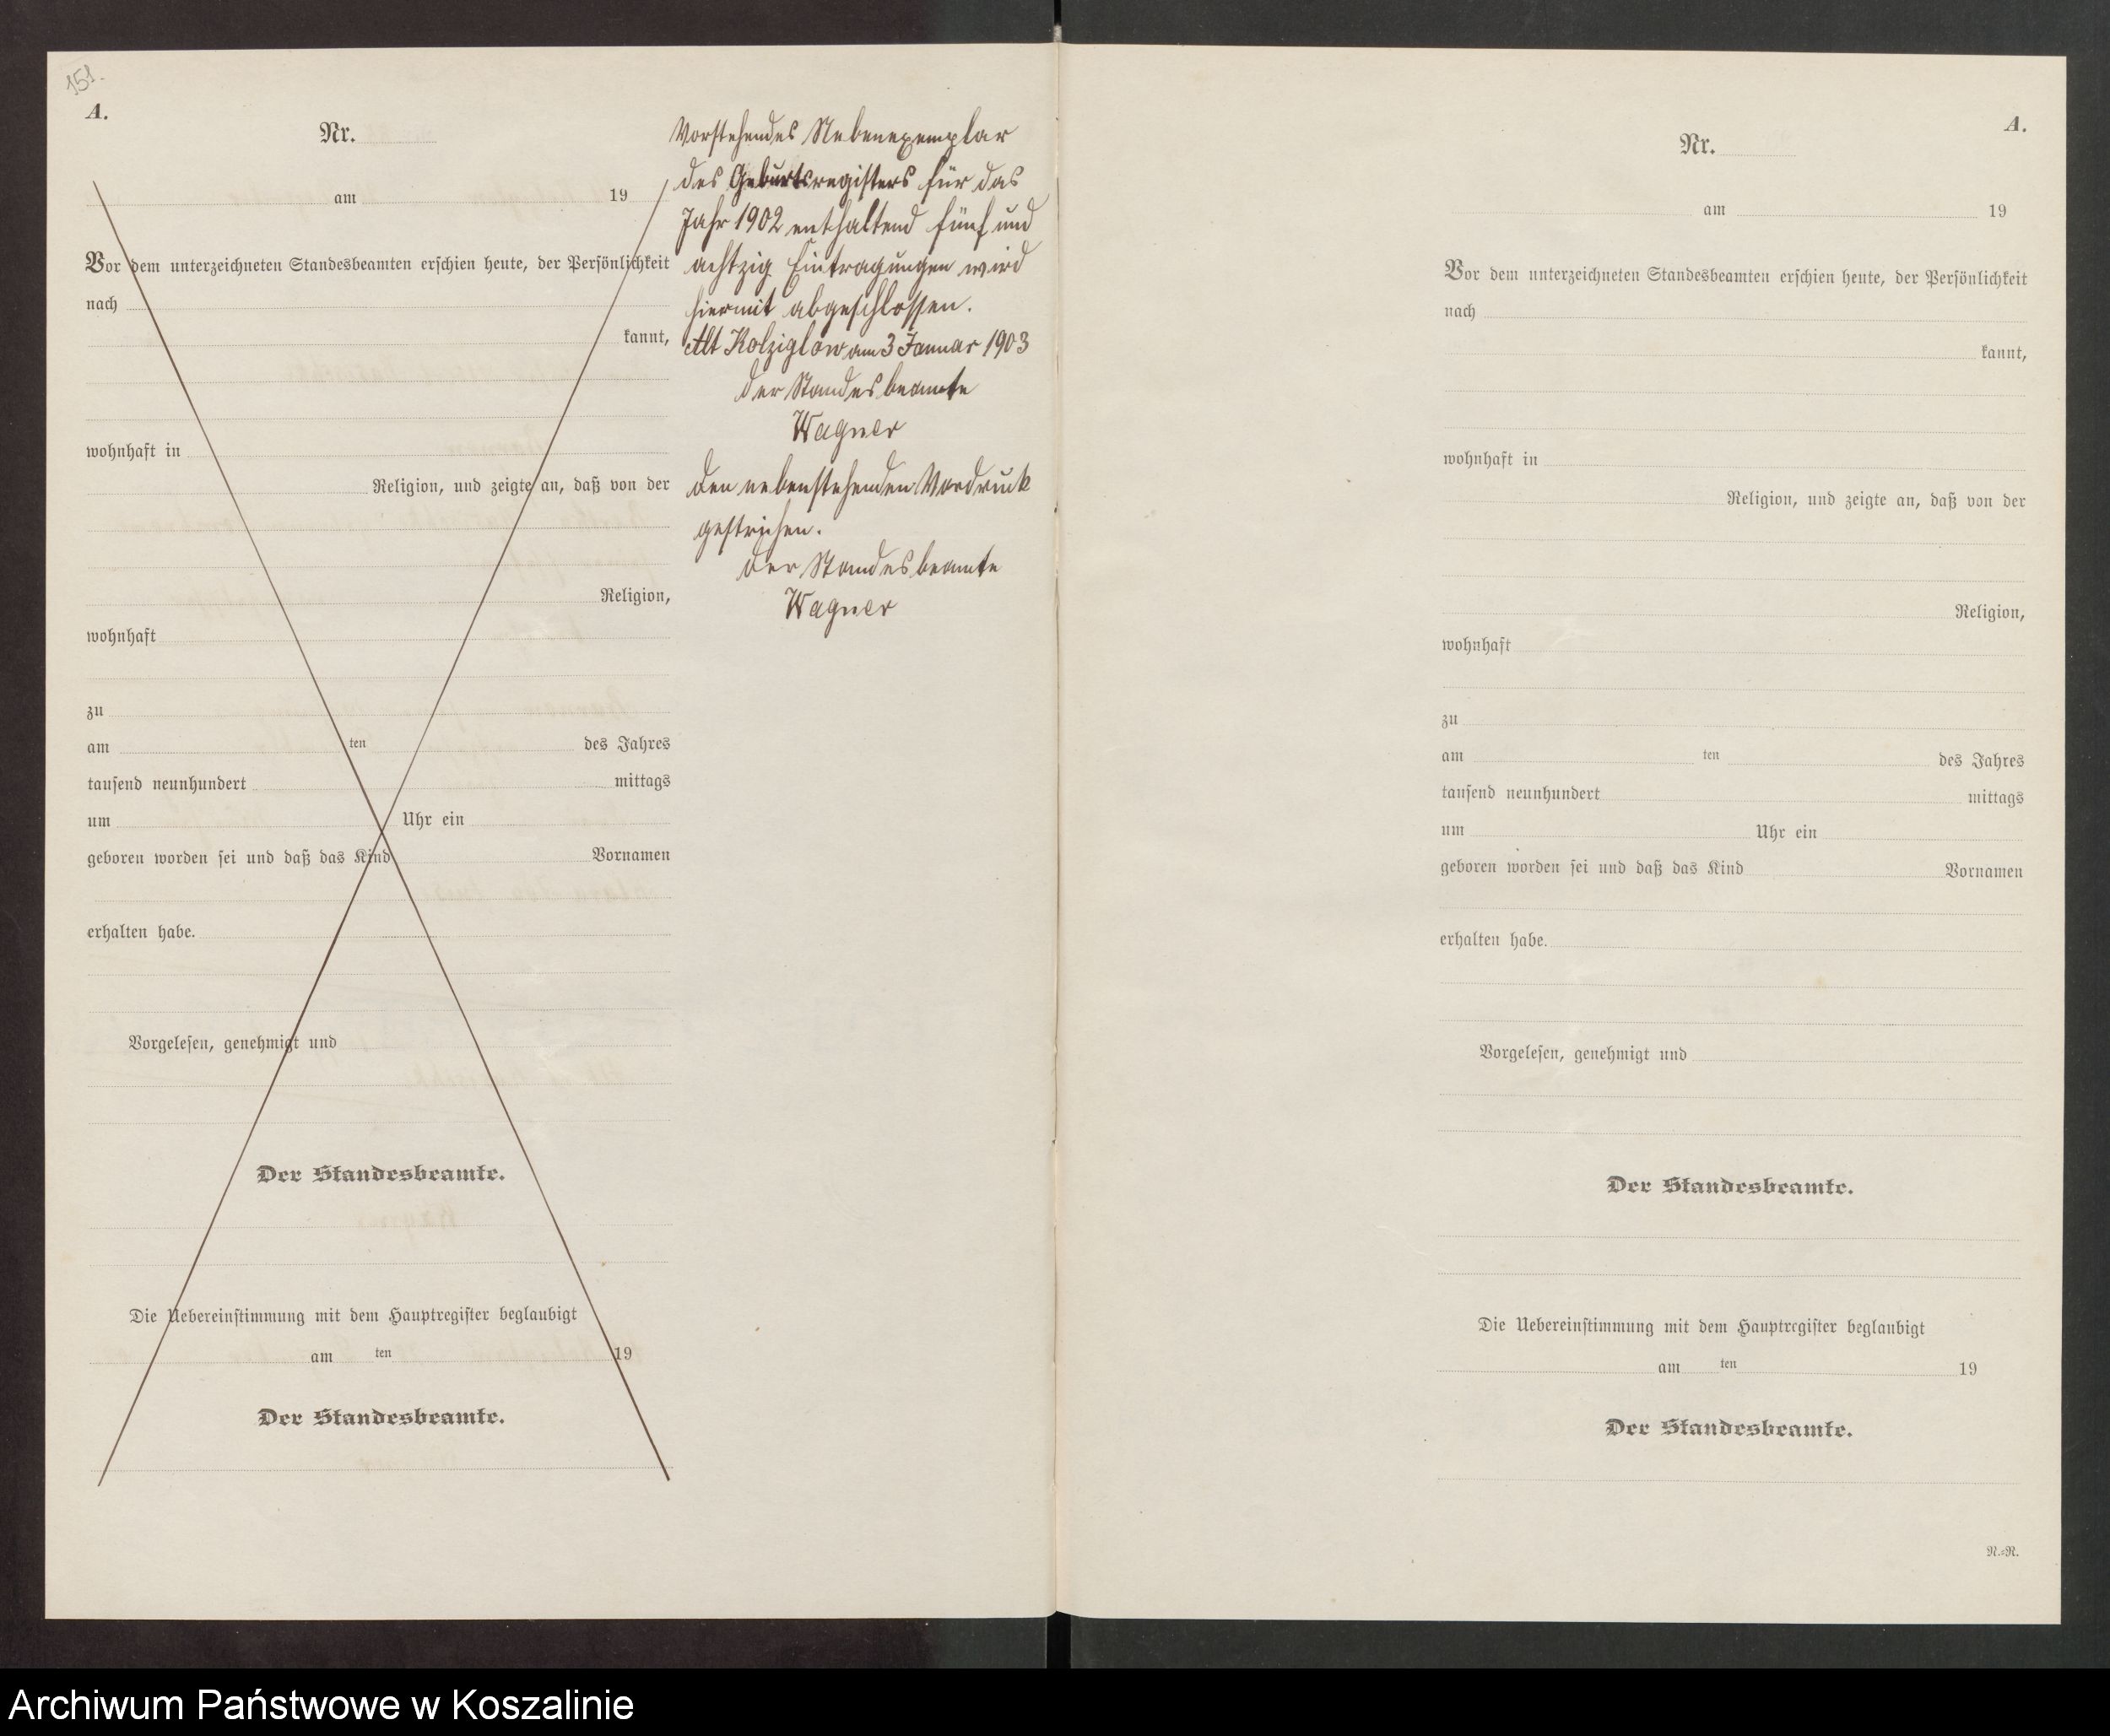 151.
A.
Nr.
am 19
Vor dem unterzeichneten Standesbeamten erschien heute, der Persönlichkeit
nach
kannt,
wohnhaft in
Religion, und zeigte an, daß von der
Religion,
wohnhaft
zu
am ten des Jahres
tausend neunhundert mittags
um Uhr ein
geboren worden sei und daß das Kind Vornamen
erhalten habe.
Vorgelesen, genehmigt und
Der Standesbeamte.
Die Uebereinstimmung mit dem Hauptregister beglaubigt
am ten 19
Der Standesbeamte.
Vorstehendes Nebenexemplar
des Geburtsregisters für das
Jahr 1902 enthaltend fünf und
achtzig Eintragungen wird
hiermit abgeschlossen.
Alt Kolziglow am 3 Januar 1903
der Standesbeamte
Wagner
Den nebenstehenden Vordruck
gestrichen.
Der Standesbeamte
Wagner
A.
Nr.
am 19
Vor dem unterzeichneten Standesbeamten erschien heute, der Persönlichkeit
nach
kannt,
wohnhaft in
Religion, und zeigte an, daß von der
Religion,
wohnhaft
zu
am ten des Jahres
tausend neunhundert mittags
um Uhr ein
geboren worden sei und daß das Kind Vornamen
erhalten habe.
Vorgelesen, genehmigt und
Der Standesbeamte.
Die Uebereinstimmung mit dem Hauptregister beglaubigt
am ten 19
Der Standesbeamte.
N.=R.
Archiwum Państwowe w Koszalinie